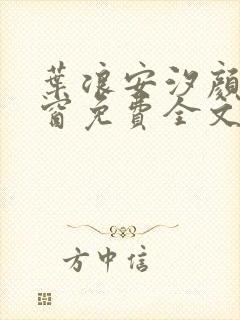 葉浪安汐顏
窗免費全文
方中信